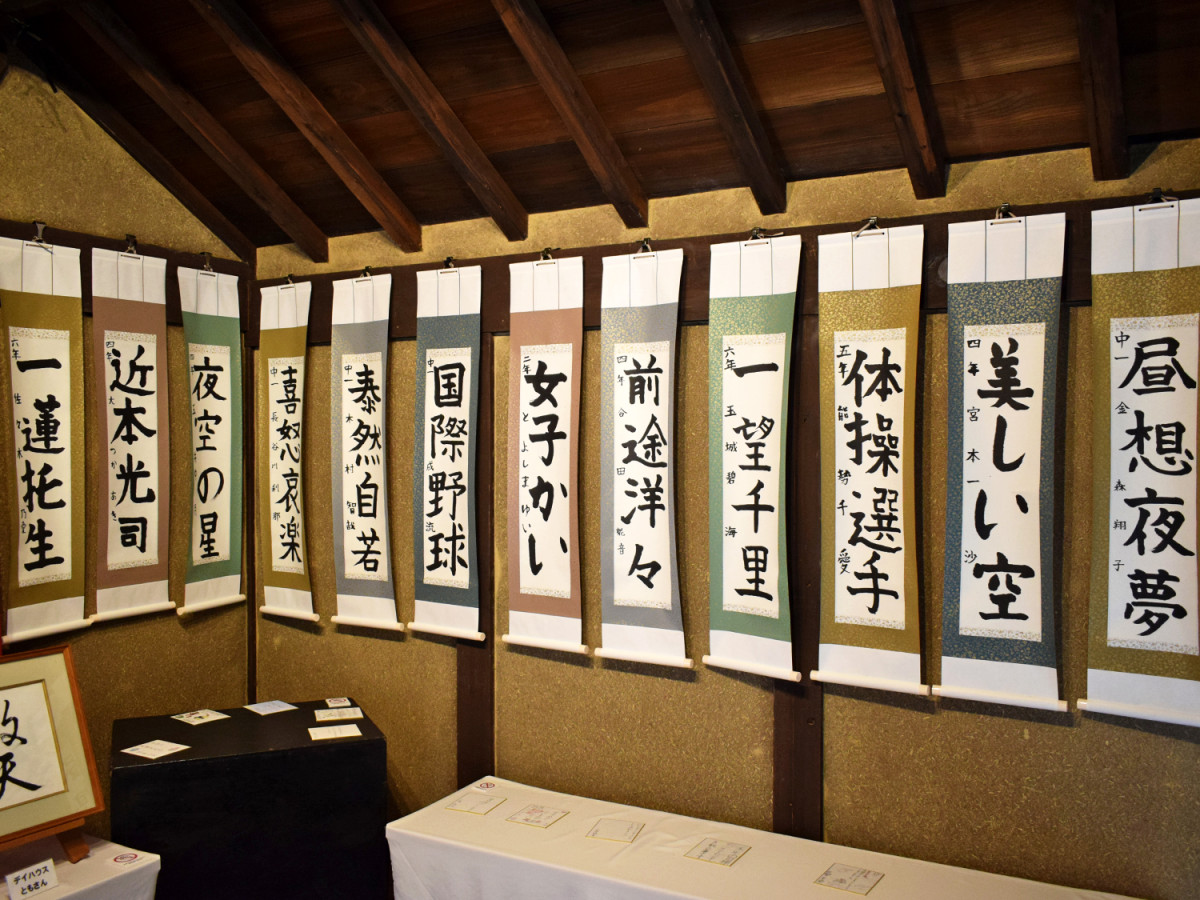 六年
一蓮托生
四年
近本光司
夜空の星
中一 長谷川利那
喜怒哀楽
中一 木村
泰然自若
中一
国際野球
二年 とよしまゆい
女子かい
四年 谷田
前途洋々
六年 玉城碧海
一望千里
五年 能勢千愛
体操選手
四年 宮本一沙
美しい空
中一 金森翔子
昼想夜夢
デイハウス
ともさん